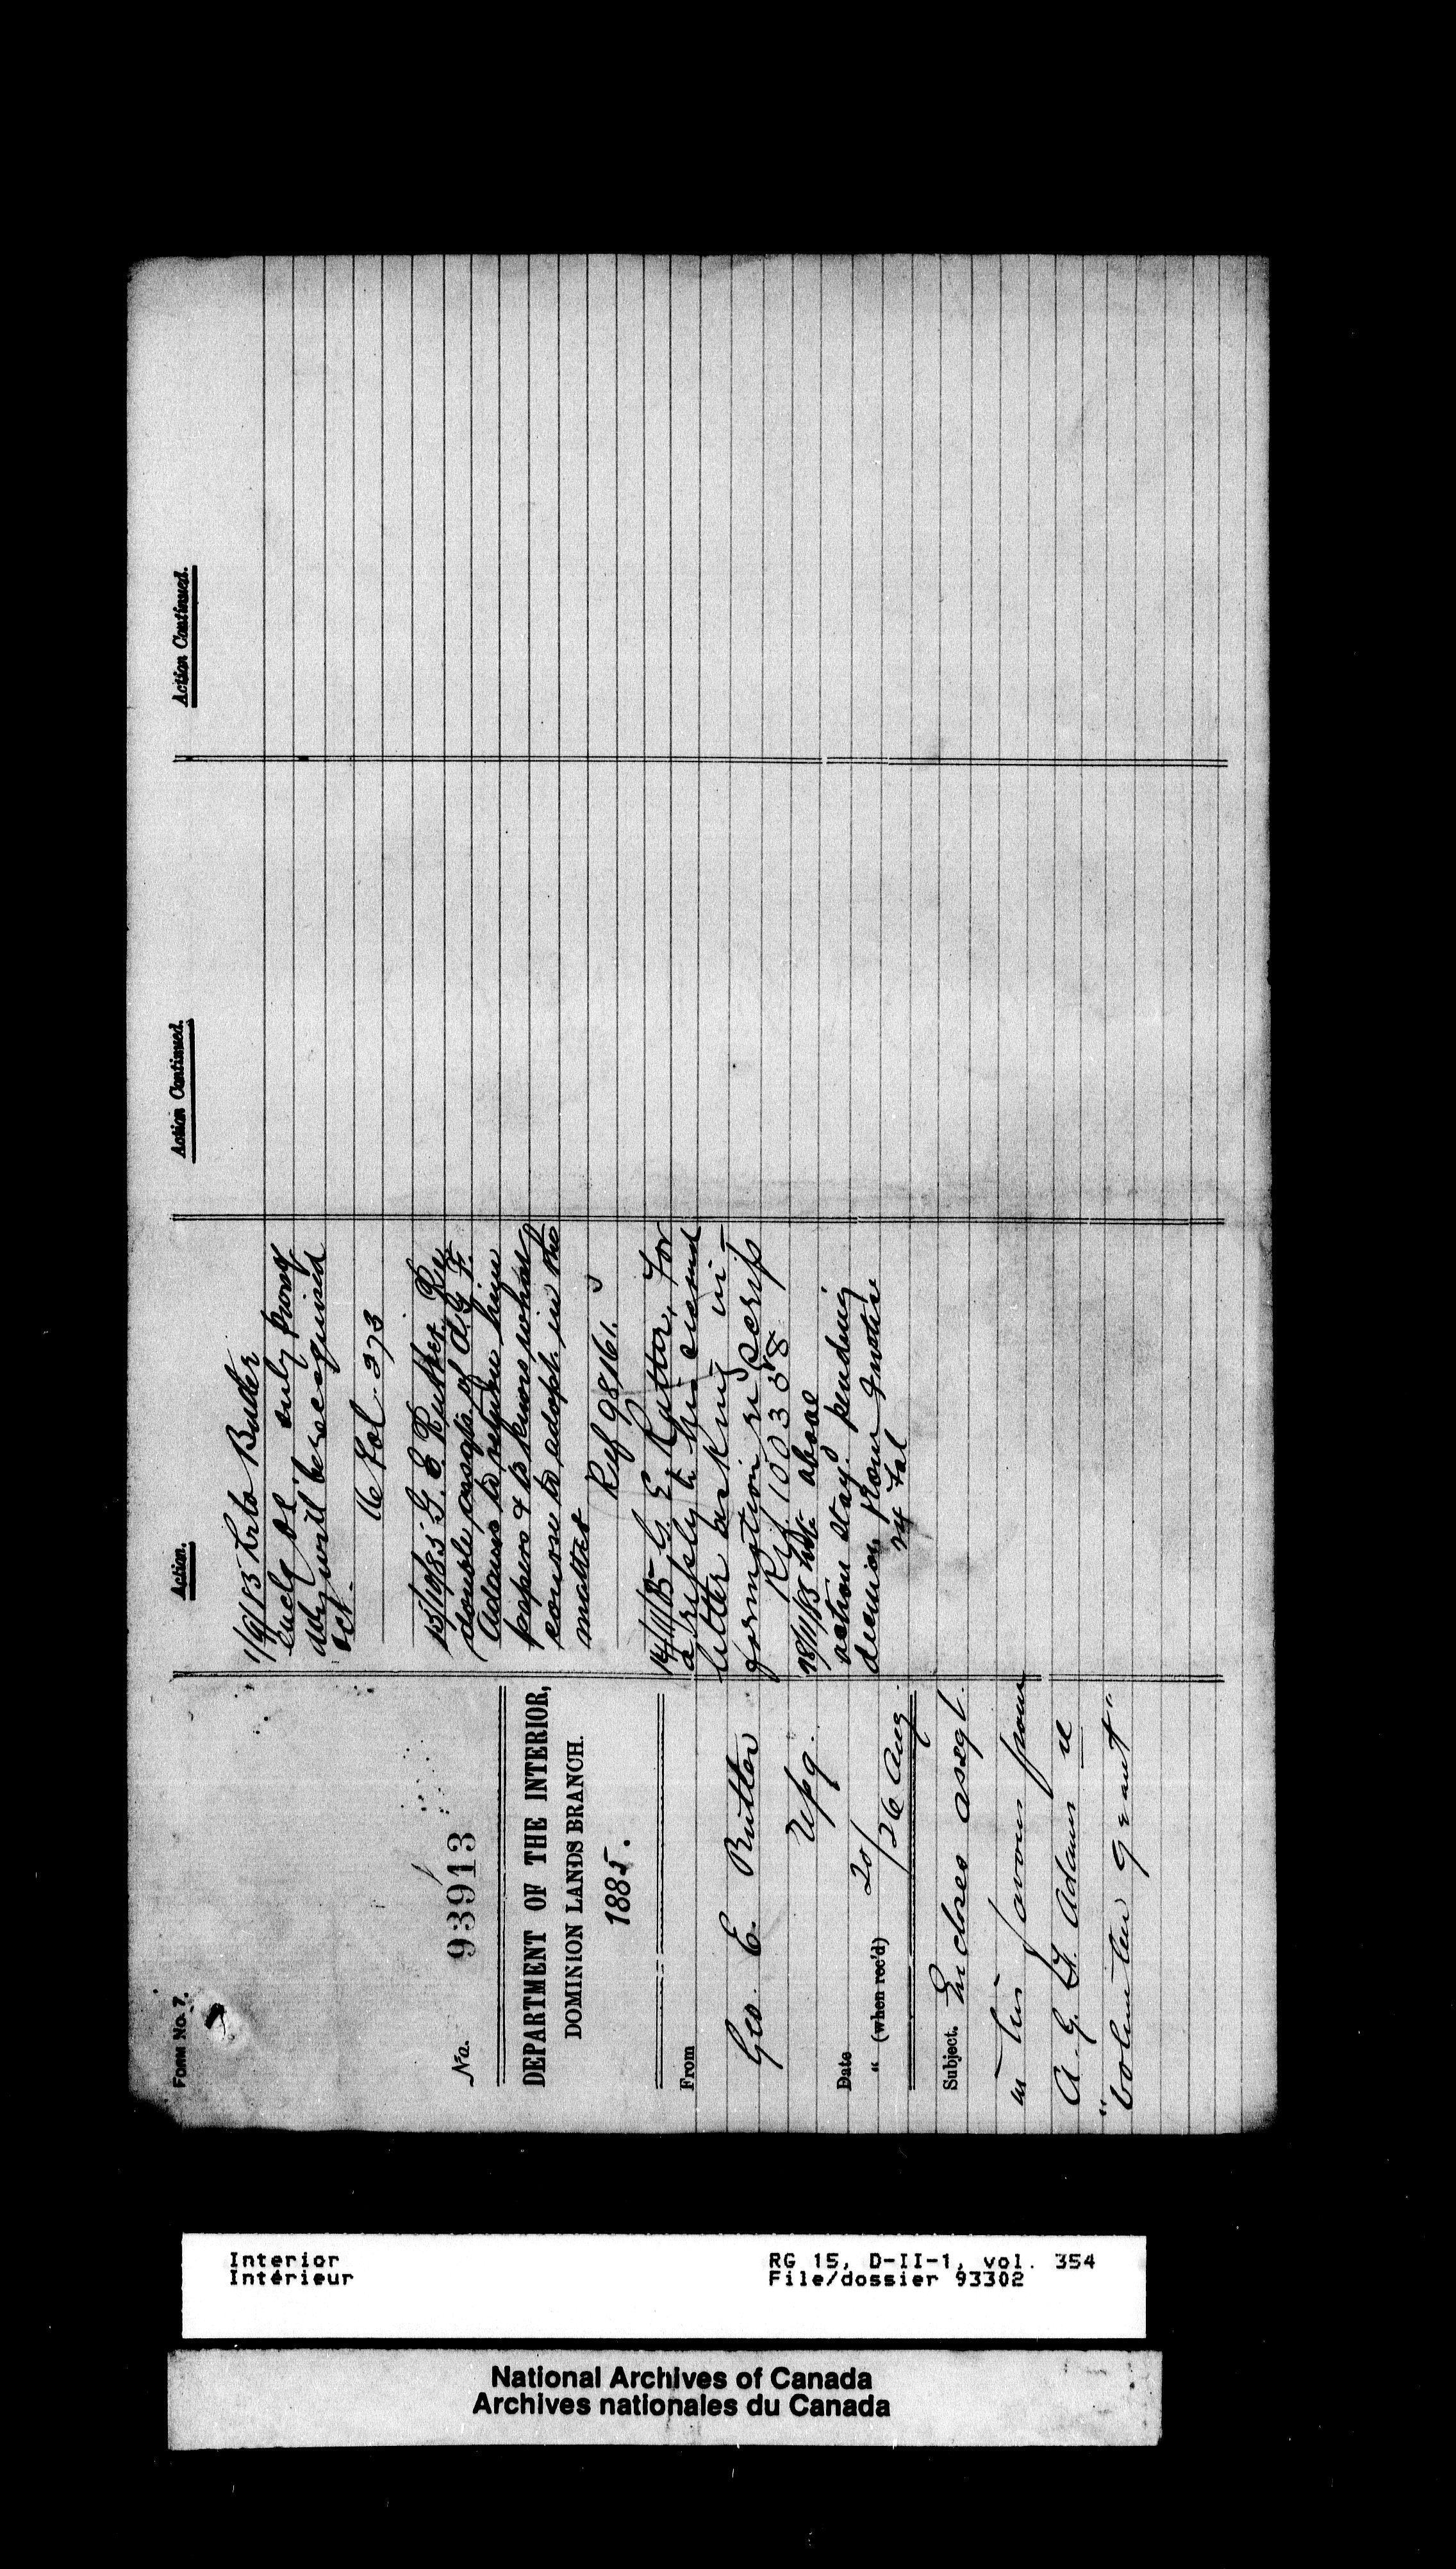 FORM No. 7.
No. 93913
DEPARTMENT OF THE INTERIOR,
DOMINION LANDS BRANCH.
1885.
From
Geo. E. Rutter
Wpg.
Date 20/
" (when rec'd) 26 Aug.
Subject. Encloses assgt.
in his favour from
A. G. F. Adams re
"volunteer grant"
Action.
1/9/85 Ltr to Rutter
only proof
will be required
Fol. 373
13/10/85 G. E. Rutter Re
double assgts of A. G. F.
Adams to return him
papers & to know what
course to adopt in the
matter
Ref 98161.
14/11/85 G. E. Rutter, for
a reply to his second
letter asking in-
formation re scrip
Ref. 100358
18/11/85 above
action stayd. pending
decision from Justice
24 Fol
Action Continued.
Action Continued.
Interior
Intérieur
RG 15, D-II-1, vol. 354
File/dossier 93302
National Archives of Canada
Archives nationales du Canada